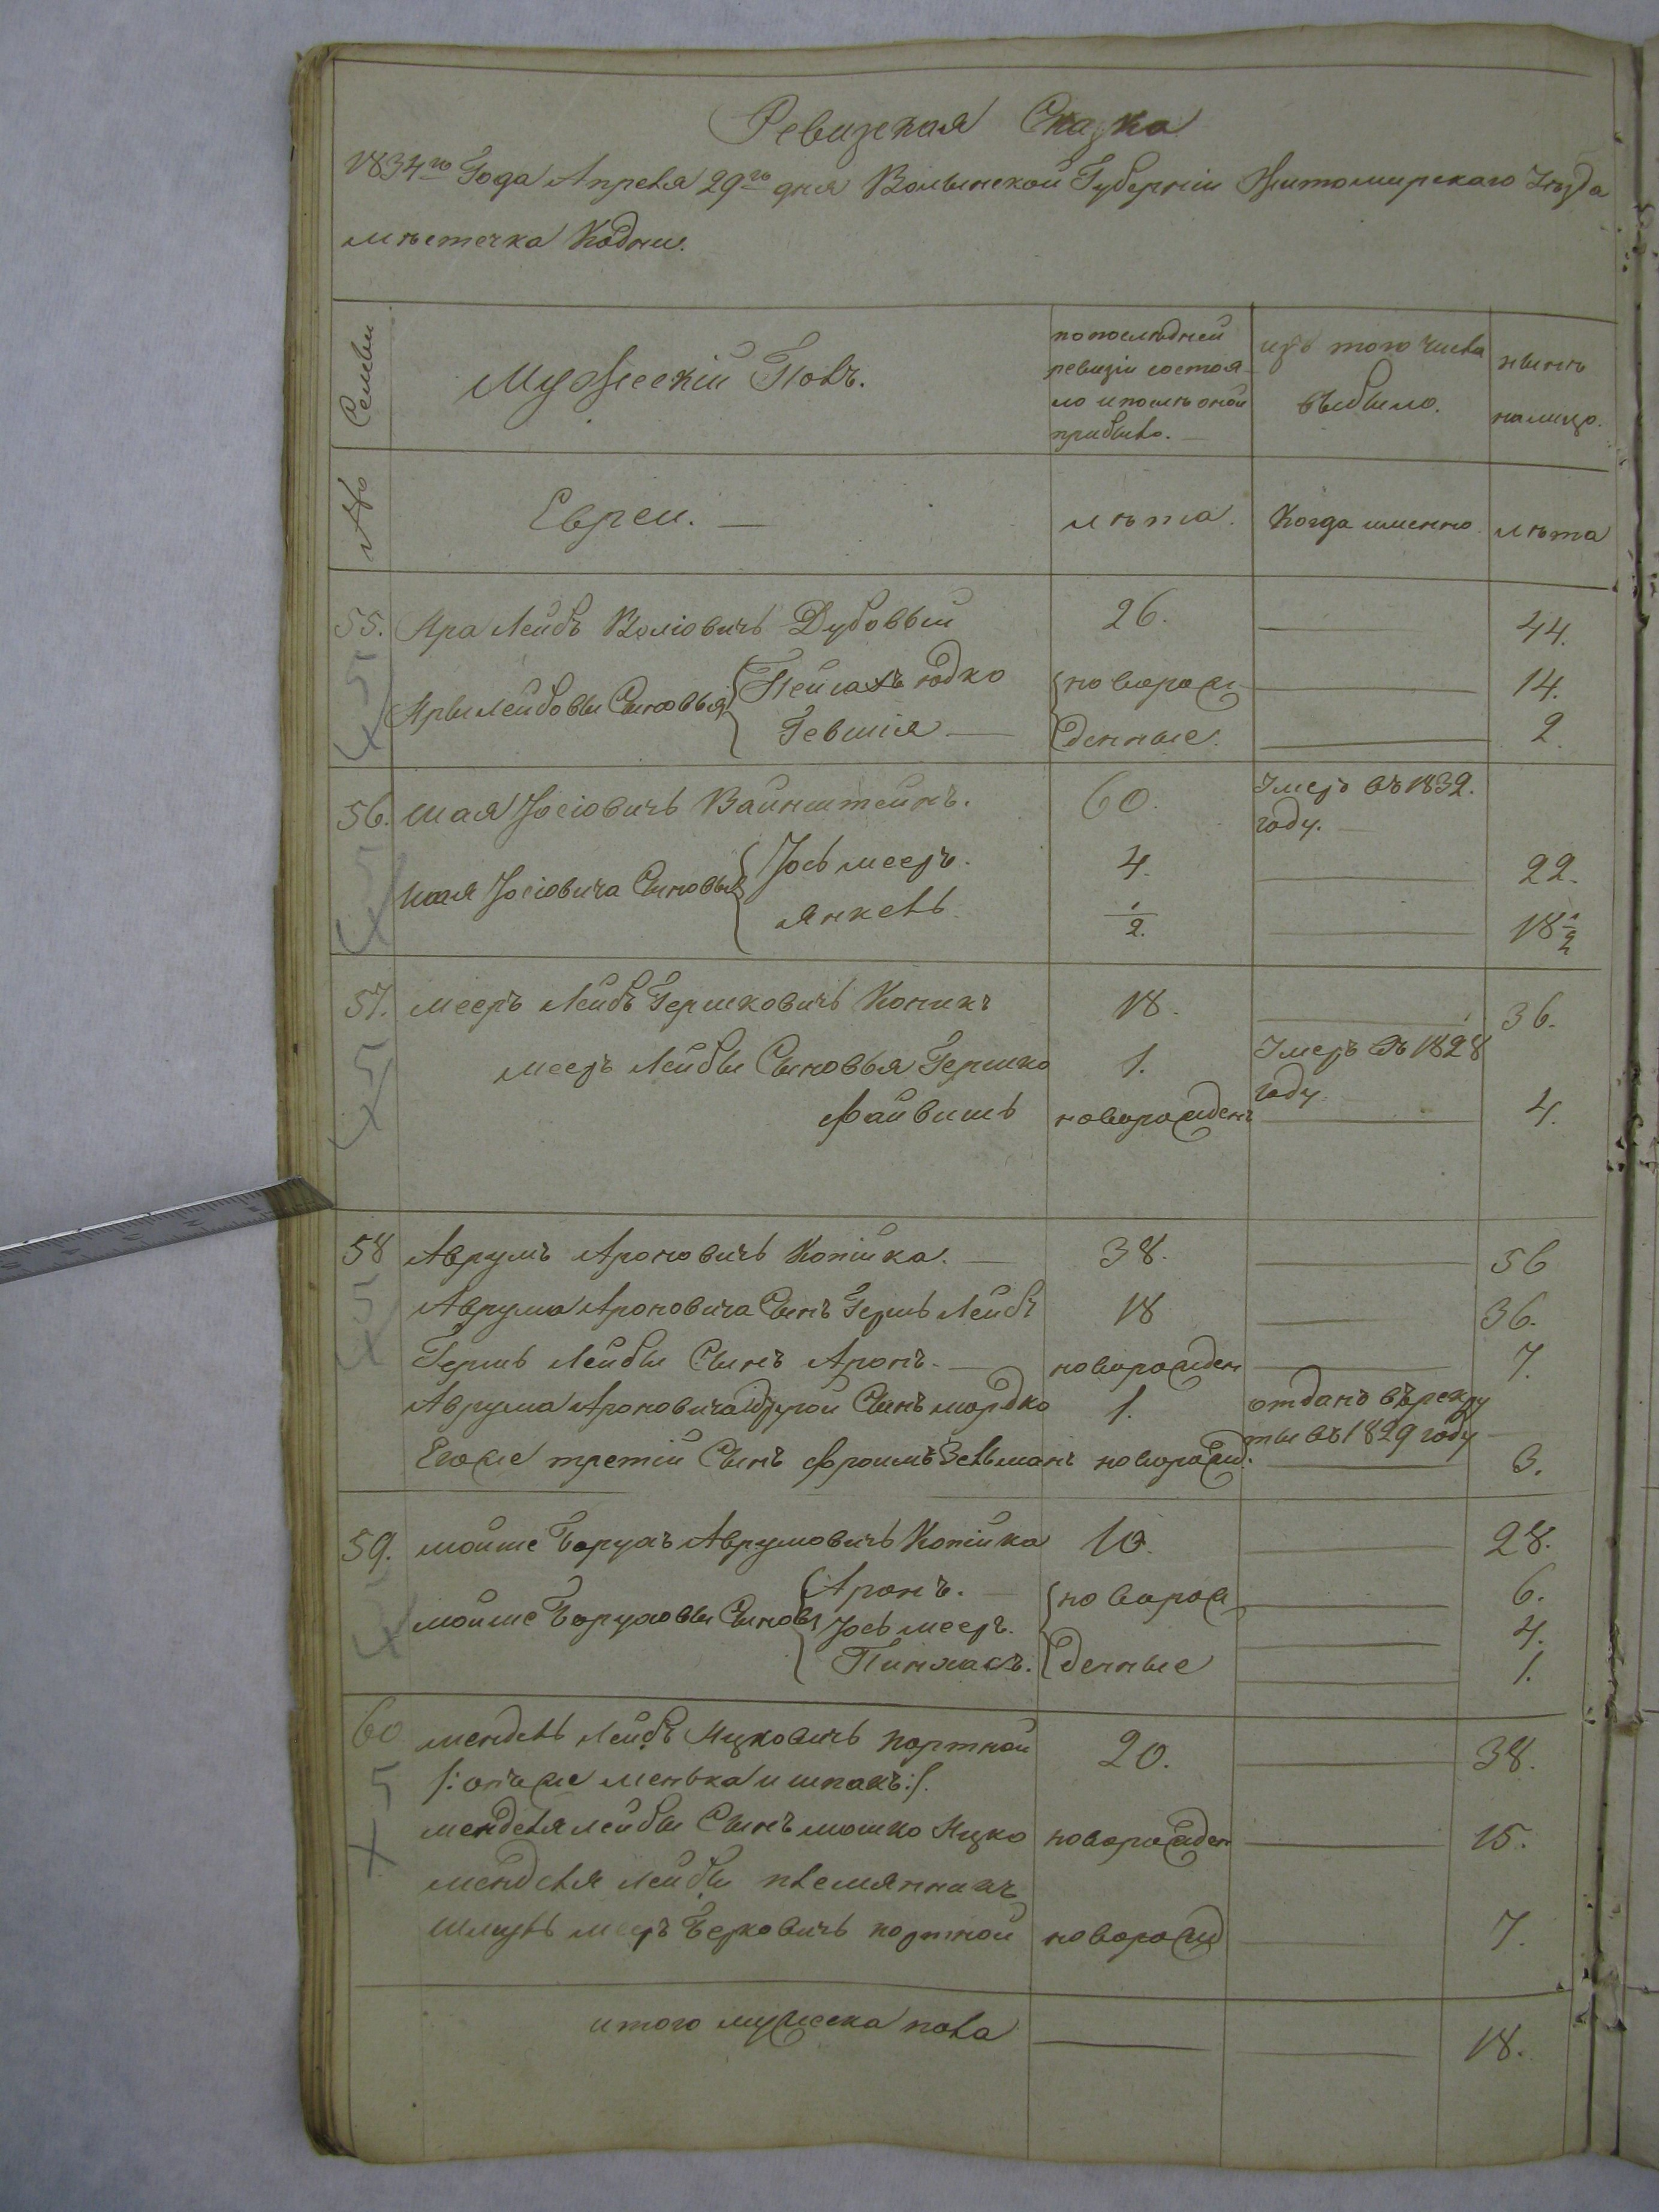 Ревизская Сказка
1834го Года Апреля 29го дня Волынской Губерніи Житомирскаго Уезда
мѣстечка Кодни.
Семьи
Мужескій Полъ.
по последней
ревизіи состоя
ло и послѣ оной
прибыло.
изъ того числа
выбыло.
нынѣ
налицо.
№
Евреи.
лѣта.
Когда именно
лѣта
55. Ара Лейбъ Воліовичъ Дубовый 26. 44.
Ары Лейбовы Сыновья Пейсахъ Юдко новорож 14.
Гевшія денные. 2.
56. Шая Іосіовичъ Вайнштейнъ. 60. Умеръ въ 1832.
году.
Шая Іосіовича Сыновья Іось мееръ. 4. 22.
Янкель 1/2. 18 1/2
57. мееръ Лейбъ Гершковичъ Коникъ 18. 36.
мееръ Лейбы Сыновья Гершко 1. Умеръ въ 1828
году.
Файвишъ новорожденъ 4.
58 Аврумъ Ароновичъ Копійка. 38. 56
Аврума Ароновича Сынъ Гершь Лейбъ 18 36.
Гершь Лейбы Сынъ Аронъ. новорожден 7.
Аврума Ароновича другой Сынъ мордко 1. отданъ в рекру
ты въ 1829 году
Егоже третій Сынъ Фроимъ Зельманъ новорожд. 3.
59. мойше Борухъ Аврумовичъ Копійка 10. 28.
мойше Боруховы Сыновья Аронъ. новорож 6.
Іось мееръ. 4.
Пинхасъ. денные 1.
60 мендель Лейбъ Ицковичъ портной 20. 38.
/: онъ же менька и шпакъ:/.
менделя лейбы Сынъ мошко Ицко новорожден 15.
менделя лейбы племянникъ
шмуль меръ Берковичъ портной новорожд 7.
итого мужеска пола 18.
5
5
5
5
5